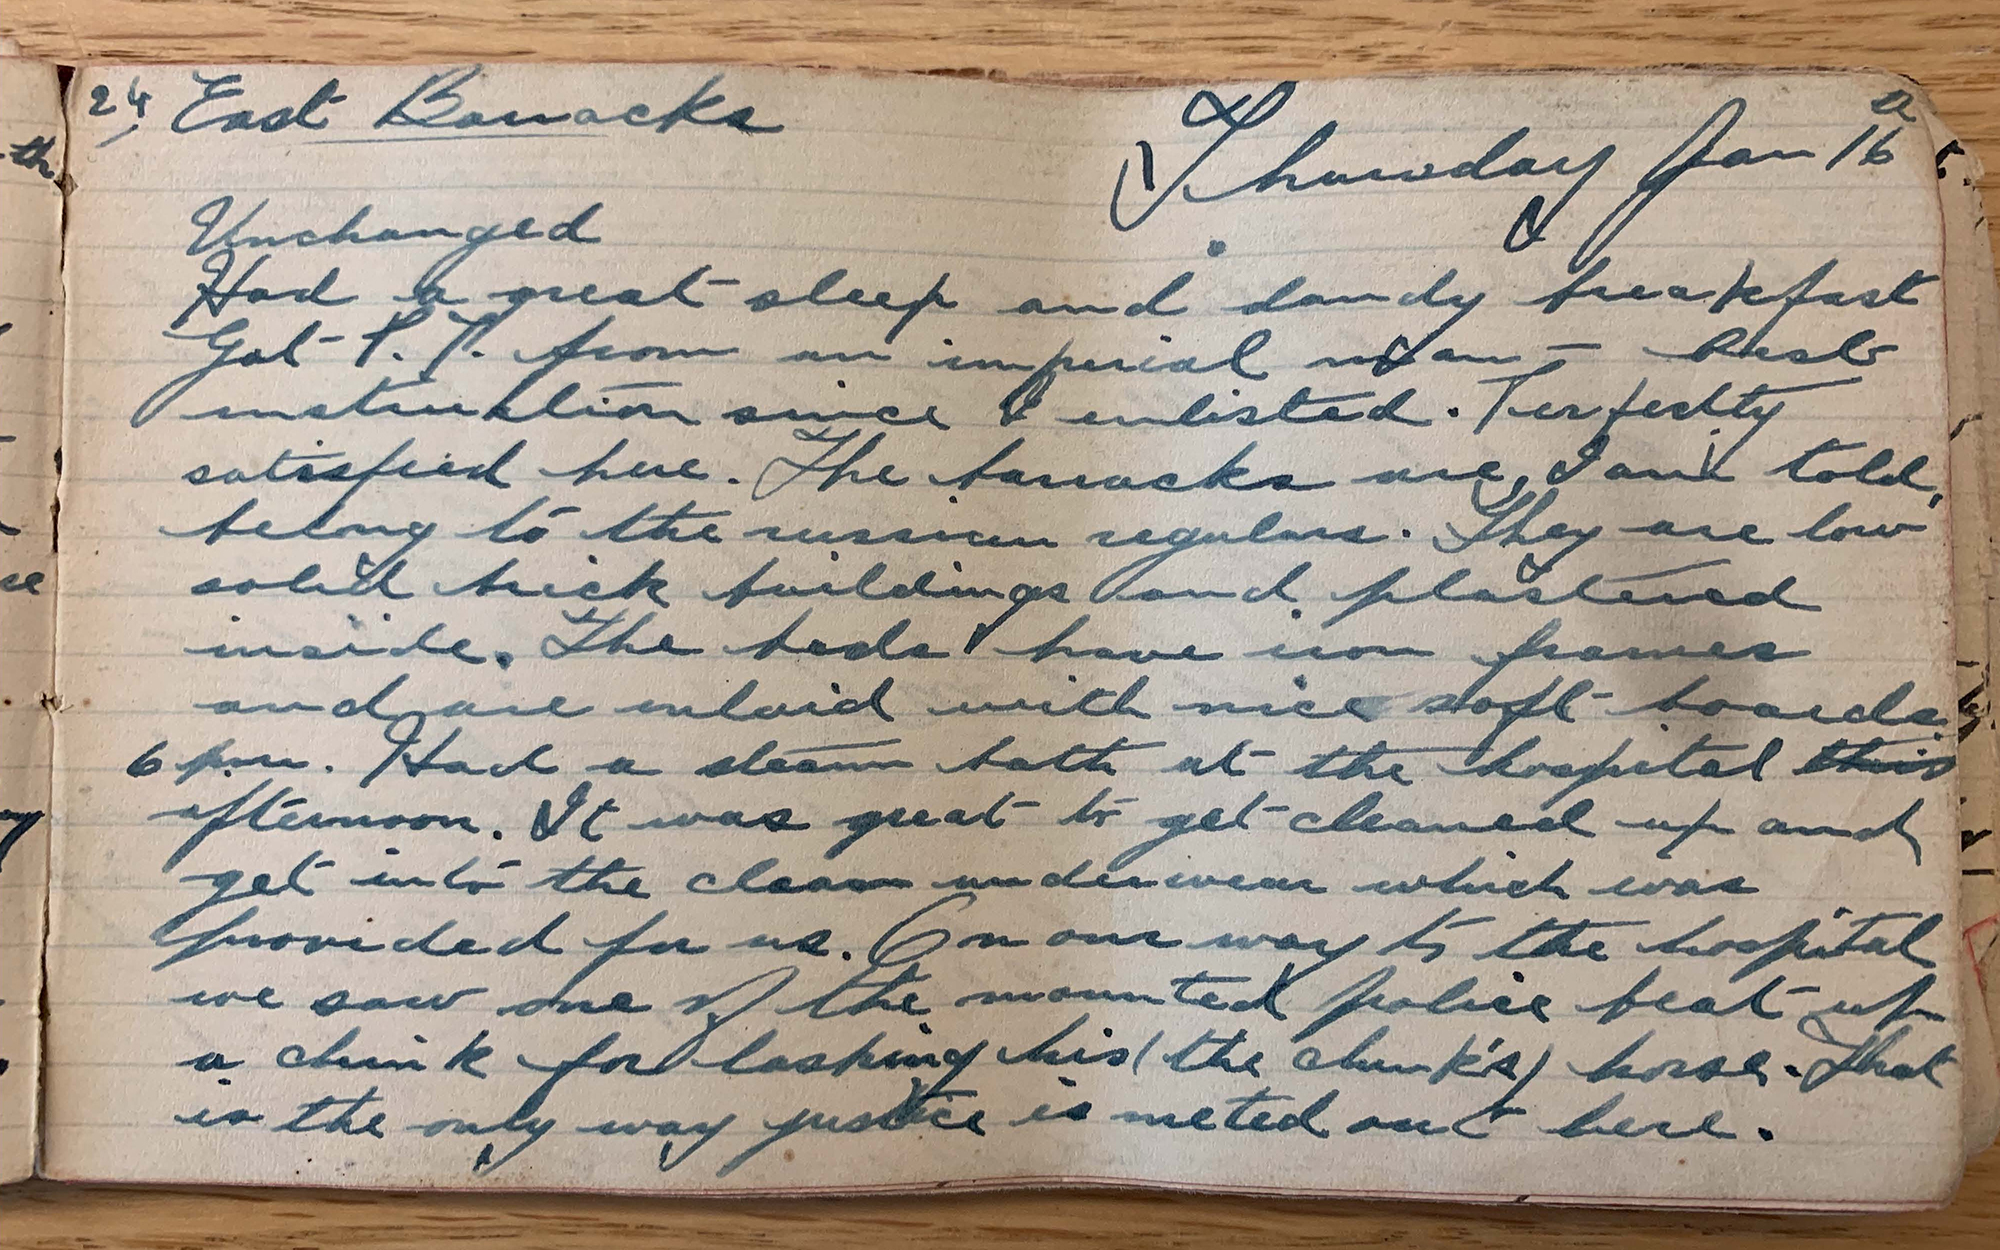 24, East Barracks
a
Thursday Jan 16
Unchanged
Had a great sleep and dandy breakfast
Got P.T. from an imperial man – best
instruction since I enlisted. Perfectly
satisfied here. The barracks are, I am told,
belong to the russian regulars. They are low
solid brick buildings and plastered
inside. The beds have iron frames
and are inlaid with nice soft boards.
6 p.m. Had a steam bath at the hospital this
afternoon. It was great to get cleaned up and
get into the clean underwear which was
provided for us. On our way to the hospital
we saw one of the mounted police beat up
a chink for lashing his (the chink's) horse. That
is the only way justice is meted out here.